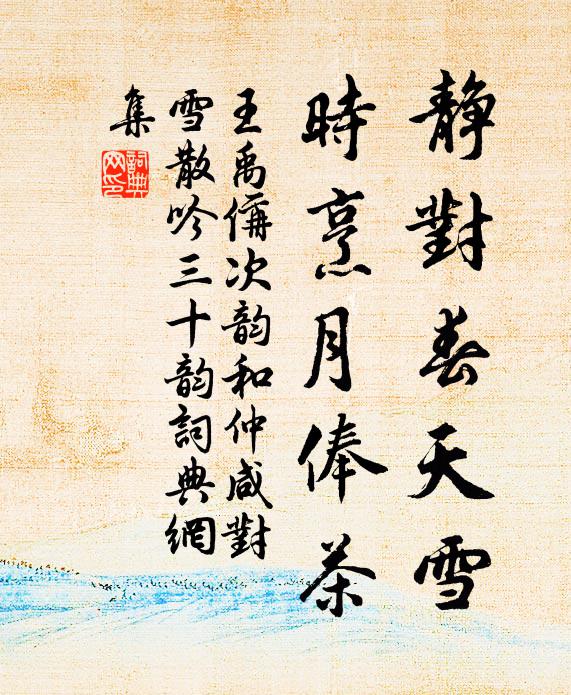 靜對春天雪
時烹月俸茶
王禹偁次韵和仲咸對
雪散吟三十韵詞典網
集
詞典
网印